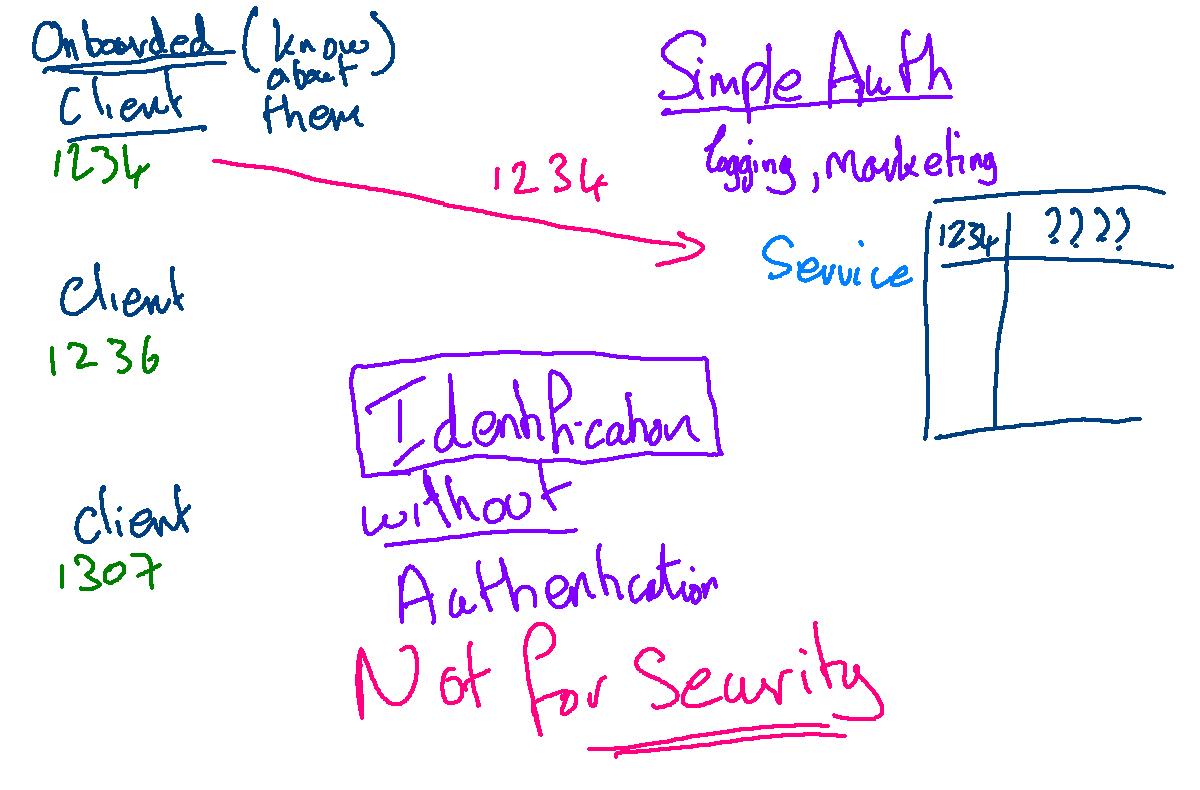 Onboarded (know
about
Client them
1234
1234
Simple Auth
logging, marketing
Service
1234 ????
Client
1236
Identification
without
Authentication
Not for Security
Client
1307